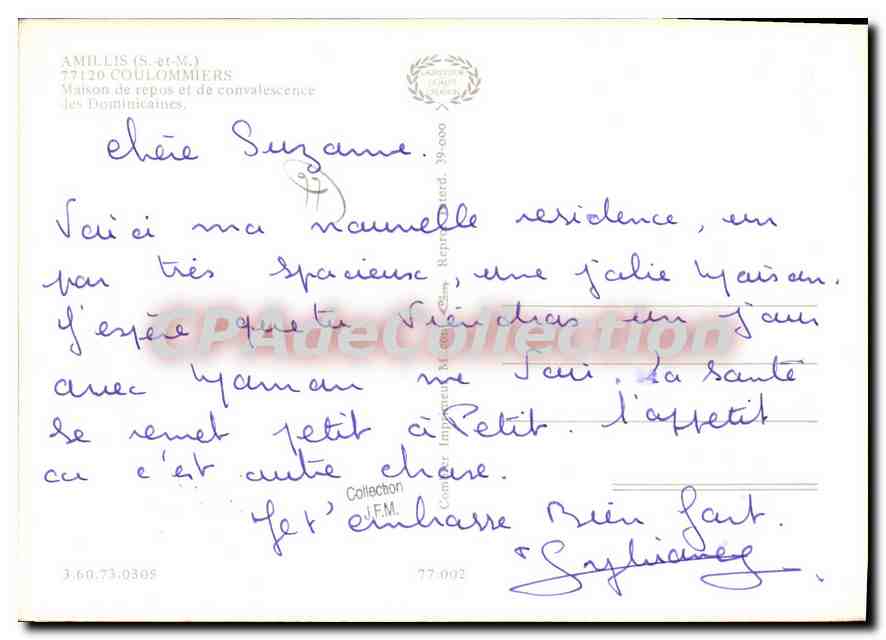 AMILLIS (S.-et-M.)
77120 COULOMMIERS
Maison de repos et de convalescence
des Dominicaines.
chère Suzanne.
77
Voici ma nouvelle residence, un
par très spacieux, une jolie maison.
J'espère que tu viendras un jour
avec maman me voir. La santé
se remet petit à Petit. l'appetit
ou c'est autre chose.
Je t'embrasse Bien fort.
Collection
J.F.M.
3.60.73.0305
77.002
Combier Imprimeur Mâcon Cim Repro. interd. 39-000
CPAdeCollection